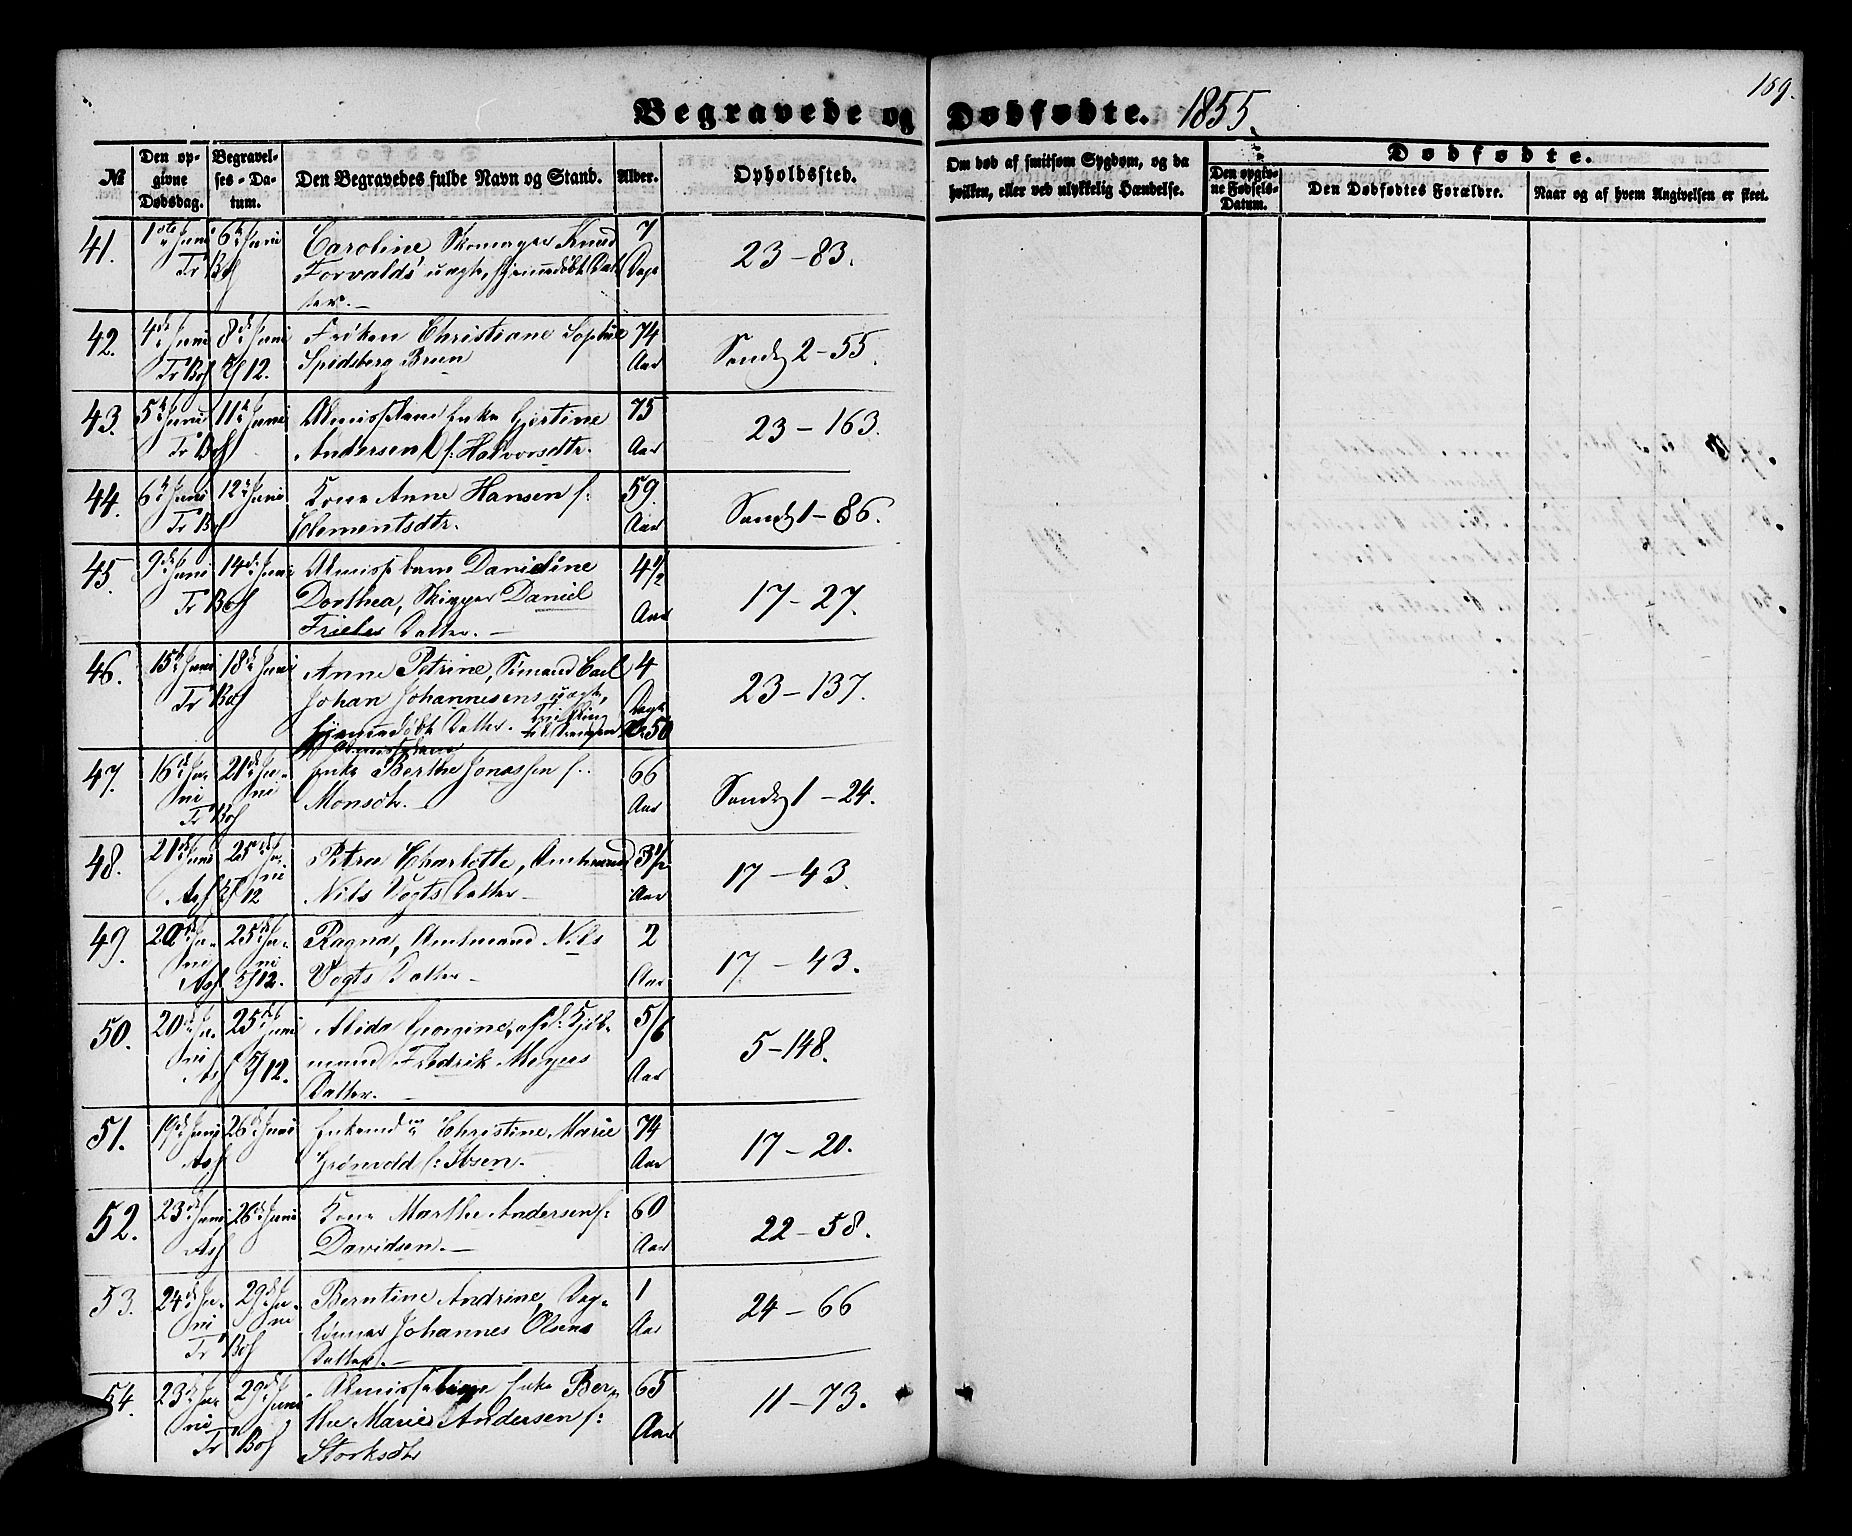 159.
Begravede og Dødfødte. 1855.
№
Den opgivne Dødsdag.
Begravelses-Datum.
Den Begravedes fulde Navn og Stand.
Alder.
Opholdssted.
Om død af smitsom Sygdom, og da hvilken, eller ved ulykkelig Hændelse.
Dødfødte.
Den opgivne Fødsels-Datum.
Den Dødfødtes Forældre.
Naar og af hvem Angivelsen er skeet.
41. 1ste Juni 6te Juni Caroline, Skomager Knud 7
Torvalds' uægte, hjemmedøbt Dat Dage 23-83.
Tr Bof
ter.-
42. 4de Juni 8de Juni Frøken Christiane Sophie 74
Tr Bof 12. Spidsberg Brun Aar 2-55.
43. 5te Juni 11te Juni Enke Gjertine 75
Tr Bof Andersen f: Halvorsdtr. Aar 23-163.
44. 6te Juni 12te Juni Kone Anne Hansen f: 59.
Tr Bof Clementsdtr. Aar 1-86.
45. 9de Juni 14de Juni Danidine 4½
Tr Bof Dorthea, Skipper Daniel Aar 17-27.
Frieles Datter.-
46. 15de Juni 18de Juni Anne Petrine, Carl 4
Tr Bof Johan Johannesens uægte, Dage 23-137.
hjemmedøbt Datter. Tvilling 50
47. 16de Juni 21de Juni Enke Berthe Jonassen f: 66
Tr Bof Monsdtr. Aar 1-24.
48. 21de Juni 25de Juni Petra Charlotte, Amtmand 3½
Asf 12 Nils Vogts Datter- Aar 17-43.
49. 20de Juni 25de Juni Ragna, Amtmand Nils 2
Asf 12. Vogts Datter- Aar 17-43.
50. 20de Juni 25de Juni Alida Kjøb- 5/6
Asf 12. mand Fredrik Meyers Aar 5-148.
Datter.-
51. 19de Juni 26de Juni Christine Marie 74
Asf f: Ibsen.- Aar 17-20.
52. 23de Juni 28de Juni Kone Marthe Andersen f: 60
Asf Davidsen.- Aar 22-58.
53. 24de Juni 29de Juni Berntine Andrine, Dag- 1
Tr Bof lønner Johannes Olsens Aar 24-66
Datter.-
54. 23de Juni 29de Juni Enke Ber- 65
Tr Bof the Marie Andersen f: Aar 11-73.
Storksdtr